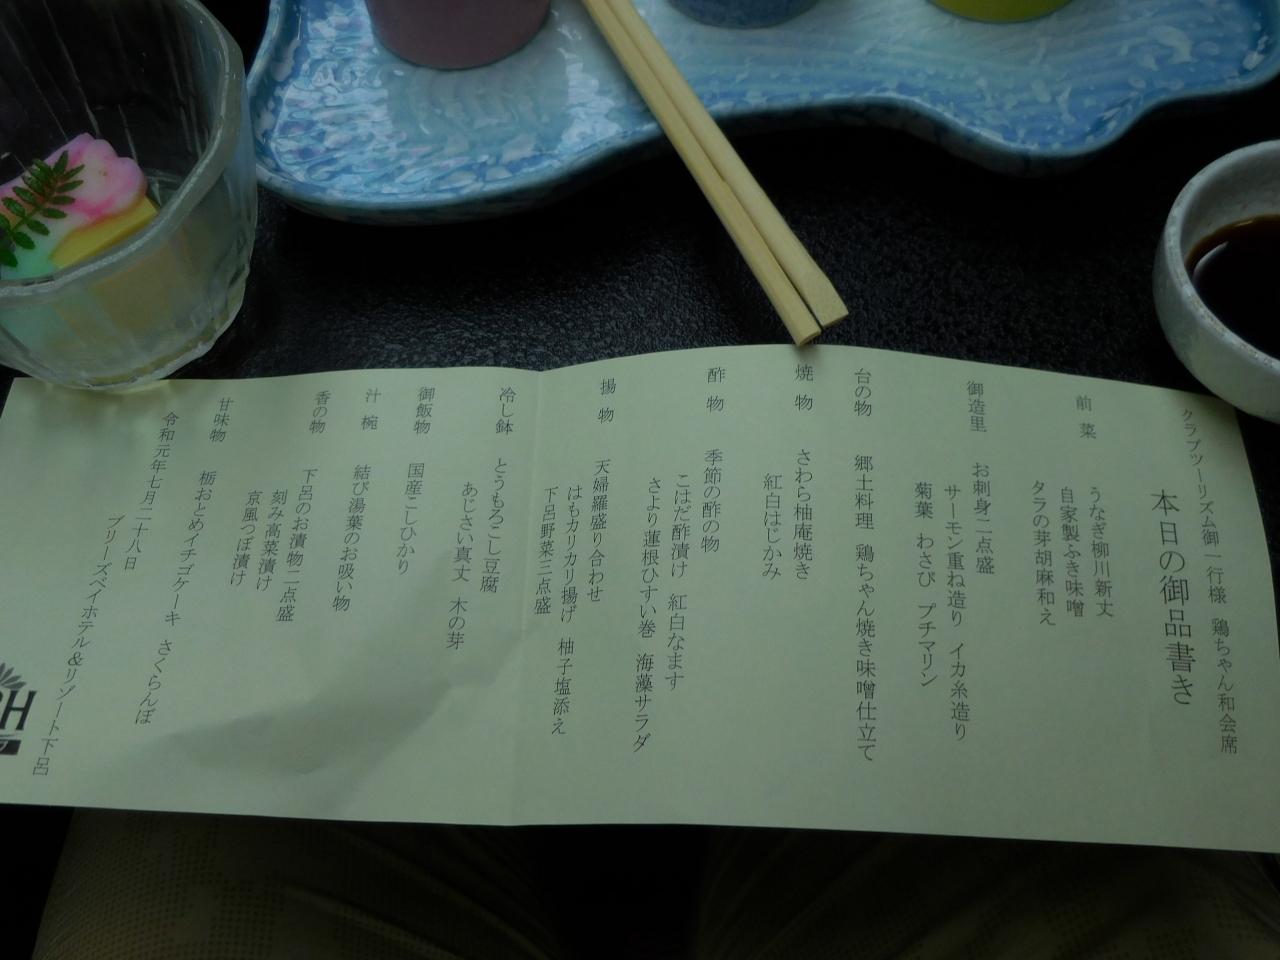 クラブツーリズム御一行様 鶏ちゃん和会席
本日の御品書き
前菜 うなぎ柳川新丈
自家製ふき味噌
タラの芽胡麻和え
御造里 お刺身二点盛
サーモン重ね造り イカ糸造り
菊葉 わさび プチマリン
台の物 郷土料理 鶏ちゃん焼き味噌仕立て
焼物 さわら柚庵焼き
紅白はじかみ
酢物 季節の酢の物
こはだ酢漬け 紅白なます
さより蓮根ひすい巻 海藻サラダ
揚物 天婦羅盛り合わせ
はもカリカリ揚げ 柚子塩添え
下呂野菜三点盛
冷し鉢 とうもろこし豆腐
あじさい真丈 木の芽
御飯物 国産こしひかり
汁椀 結び湯葉のお吸い物
香の物 下呂のお漬物二点盛
刻み高菜漬け
京風つぼ漬け
甘味物 栃おとめイチゴケーキ さくらんぼ
令和元年七月二十八日
ブリーズベイホテル&リゾート下呂